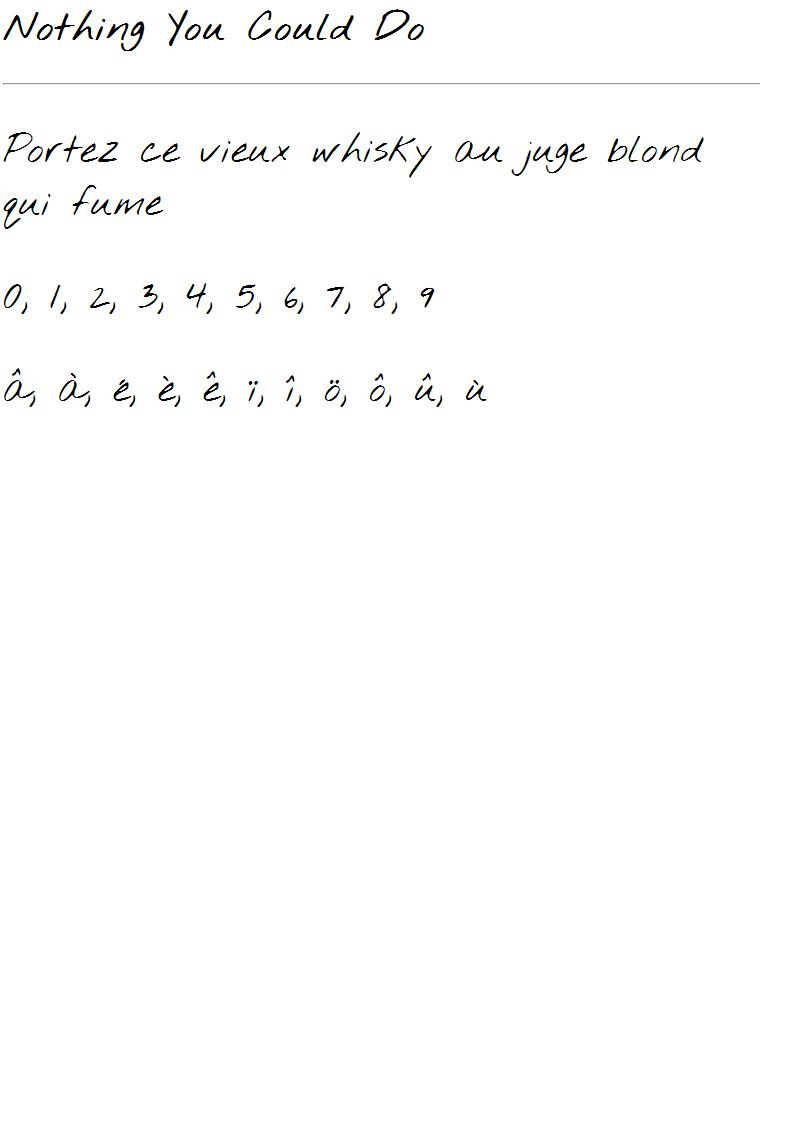 Nothing You Could Do
Portez ce vieux whisky au juge blond
qui fume
0, 1, 2, 3, 4, 5, 6, 7, 8, 9
â, à, é, è, ê, ï, î, ö, ô, û, ù